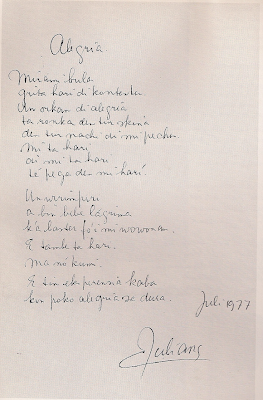 Alegria
Mi ami bula
grita hari di kontentu.
Un orkan di alegria
ta ronka den tur skina
den tur nachi di mi pechu.
Mi ta hari
ai mi ta hari
te pega den mi hari.
Un wrimpuri
a bin bebe lágrima
for di mi wowonan.
E tambe ta hari.
Ma nó kumi.
E tin eksperensia kaba
kon poko alegria sa dura.
Juli 1977
Juliana